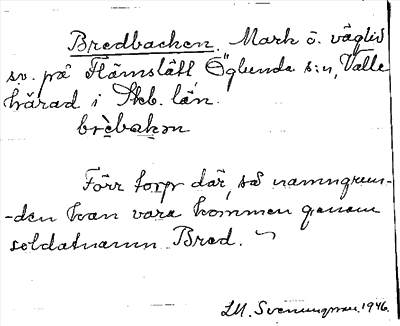 Bredbacken. Mark ö. väglid
sv. på Flämslätt Öglunda s:n, Valle
härad i Skb. län.
brèbakən
Förr torp där, så namngrun-
-den kan vara kommen genom
soldatnamn Bred.
LM. Svenungsson. 1946.